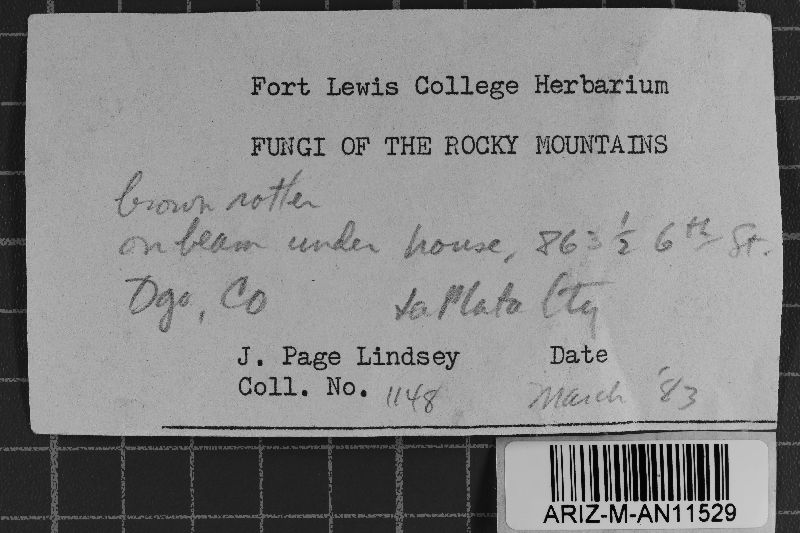 Fort Lewis College Herbarium
FUNGI OF THE ROCKY MOUNTAINS
brown rotter
on beam under house, 863 1/2 6th St.
Dgo, Co La Plata Cty
J. Page Lindsey Date
Coll. No. 1148 March '83
ARIZ-M-AN11529